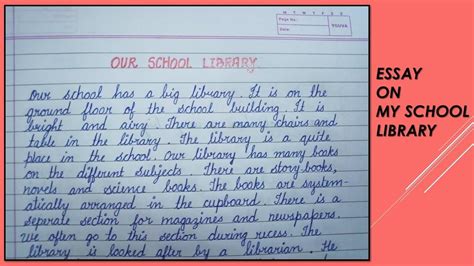 M T W T F S S
Page No.:
Date:
YOUVA
OUR SCHOOL LIBRARY
Our school has a big library. It is on the
ground floor of the school building. It is
bright and airy. There are many chairs and
table in the library. The library is a quite
place in the school. Our library has many books
on the different subjects. There are story books,
novels and science books. The books are system-
atically arranged in the cupboard. There is a
seperate section for magazines and newspapers.
We often go to this section during recess. The
library is looked after by a librarian. He
ESSAY
ON
MY SCHOOL
LIBRARY